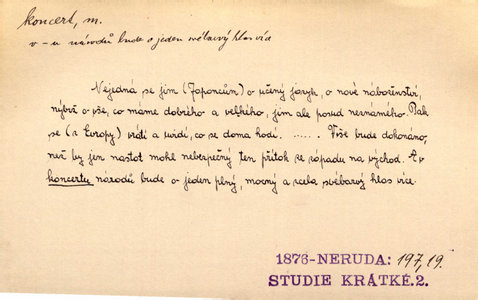 koncert, m.
v -u národů bude o jeden svébarvý hlas více
Nejedná se jim (Japoncům) o učený jazyk, o nové náboženství,
nýbrž o vše, co máme dobrého a velkého, jim ale posud neznámého. Pak
se (z Evropy) vrátí a uvidí, co se doma hodí. ...... Vše bude dokonáno,
než by jen nastat mohl nebezpečný ten přítok se západu na východ. A v
koncertu národů bude o jeden plný, mocný a zcela svébarvý hlas více.
1876-NERUDA: 197,19.
STUDIE KRÁTKÉ.2.